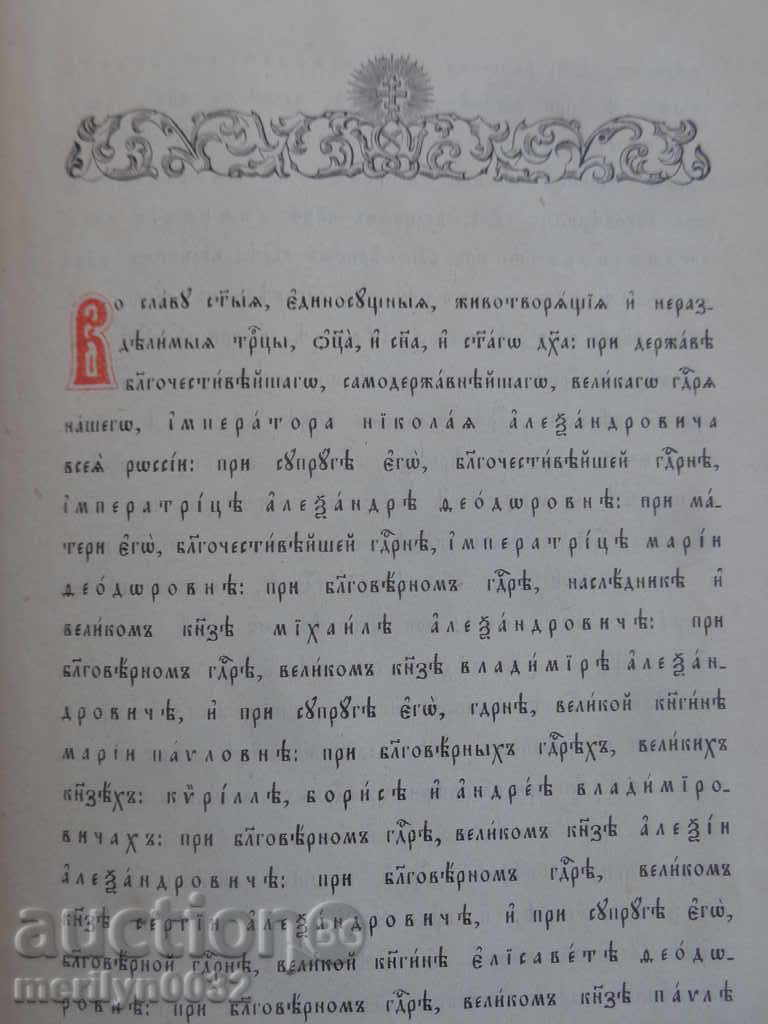 Во сла́вꙋ ст҃ы́ѧ, є҆диносꙋ́щныѧ, животворѧ́щїѧ и҆ нераз-
дѣли́мыѧ трⷪ҇цы, ѻ҆ц҃а̀, и҆ сн҃а, и҆ ст҃а́гѡ дх҃а: при держа́вѣ
благочести́вѣйшагѡ, самодержа́внѣйшагѡ, вели́кагѡ гдⷭ҇рѧ
на́шегѡ, і҆мпера́тора нїкола́ѧ а҆леѯа́ндровича
всеѧ̀ рѡссі́и: при сꙋпрꙋ́гѣ є҆гѡ̀, благочести́вѣйшей гдⷭ҇рнѣ,
і҆мператрі́цѣ а҆леѯа́ндрѣ ѳео́дѡровнѣ: при ма́-
тери є҆гѡ̀, благочести́вѣйшей гдⷭ҇рнѣ, і҆мператрі́цѣ марі́и
ѳео́дѡровнѣ: при благовѣ́рномъ гдⷭ҇рѣ, наслѣ́дникѣ и҆
вели́комъ кн҃зѣ мїхаи́лѣ а҆леѯа́ндровичѣ: при
благовѣ́рномъ гдⷭ҇рѣ, вели́комъ кн҃зѣ влади́мїрѣ а҆леѯа́н-
дровичѣ, и҆ при сꙋпрꙋ́гѣ є҆гѡ̀, гдрнѣ, вели́кой кн҃ги́нѣ
марі́и па́ѵловнѣ: при благовѣ́рныхъ гдⷭ҇рѣхъ, вели́кихъ
кн҃зѣ́хъ: кѷрі́ллѣ, бори́сѣ и҆ а҆ндре́ѣ влади́мїро-
вичахъ: при благовѣ́рномъ гдⷭ҇рѣ, вели́комъ кн҃зѣ а҆леѯі́и
а҆леѯа́ндровичѣ: при благовѣ́рномъ гдⷭ҇рѣ, вели́комъ
кн҃зѣ се́ргїи а҆леѯа́ндровичѣ, и҆ при сꙋпрꙋ́гѣ є҆гѡ̀,
благовѣ́рной гдⷭ҇рнѣ, вели́кой кн҃ги́нѣ є҆лїсаве́тѣ ѳео́дѡ-
ровнѣ: при благовѣ́рномъ гдⷭ҇рѣ, вели́комъ кн҃зѣ па́ѵлѣ
auction
merilyn0032